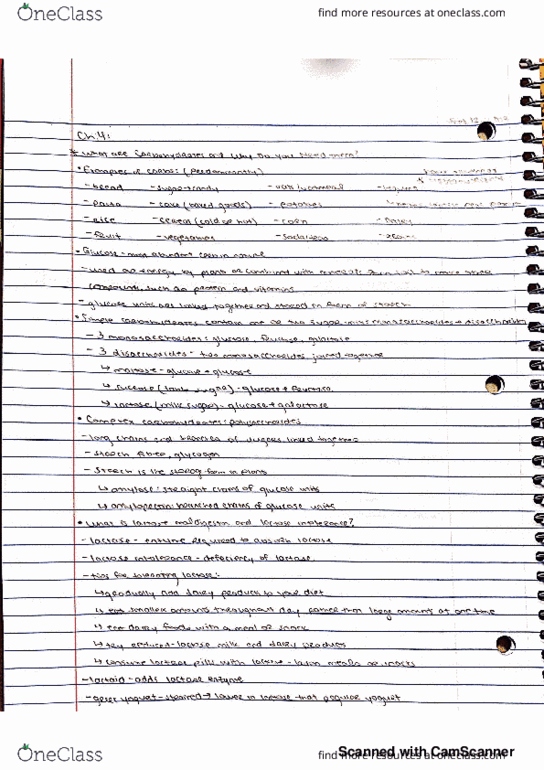 OneClass
find more resources at oneclass.com
Ch.4:
* What are Carbohydrates and Why Do you Need them?
• Examples of carbs: (predominantly)
- bread - sugar candy
- pasta - cake (baked goods) - potatoes
- rice - cereal (cold or hot) - corn
- fruit - vegetables
• Glucose - most abundant carb in nature
- used as energy by plants or combined with minerals from soil to make other
compounds, such as protein and vitamins
- glucose units are linked together and stored in form of starch
• Simple carbohydrates contain one or two sugar units: monosaccharides + disaccharides
- 3 monosaccharides: glucose, fructose, galactose
- 3 disaccharides - two monosaccharides joined together
↳ maltose - glucose + glucose
↳ sucrose (table sugar) - glucose + fructose
↳ lactose (milk sugar) - glucose + galactose
• Complex carbohydrates: polysaccharides
- long chains and branches of sugars linked together
- starch, fiber, glycogen
- Starch is the storage form in plants
↳ amylose: straight chains of glucose units
↳ amylopectin: branched chains of glucose units
• What is lactose maldigestion and lactose intolerance?
- lactase - enzyme required to absorb lactose
- lactose intolerance - deficiency of lactase
- tips for tolerating lactose:
↳ gradually add dairy products to your diet
↳ eat smaller amounts throughout day rather than large amount at one time
↳ eat dairy foods with a meal or snack
↳ try reduced-lactose milk and dairy products
↳ consume lactase pills with lactose-laden meals or snacks
- lactaid - adds lactase enzyme
- greek yogurt - strained → lower in lactose that regular yogurt
OneClass
find more resources at oneclass.com
Scanned with CamScanner